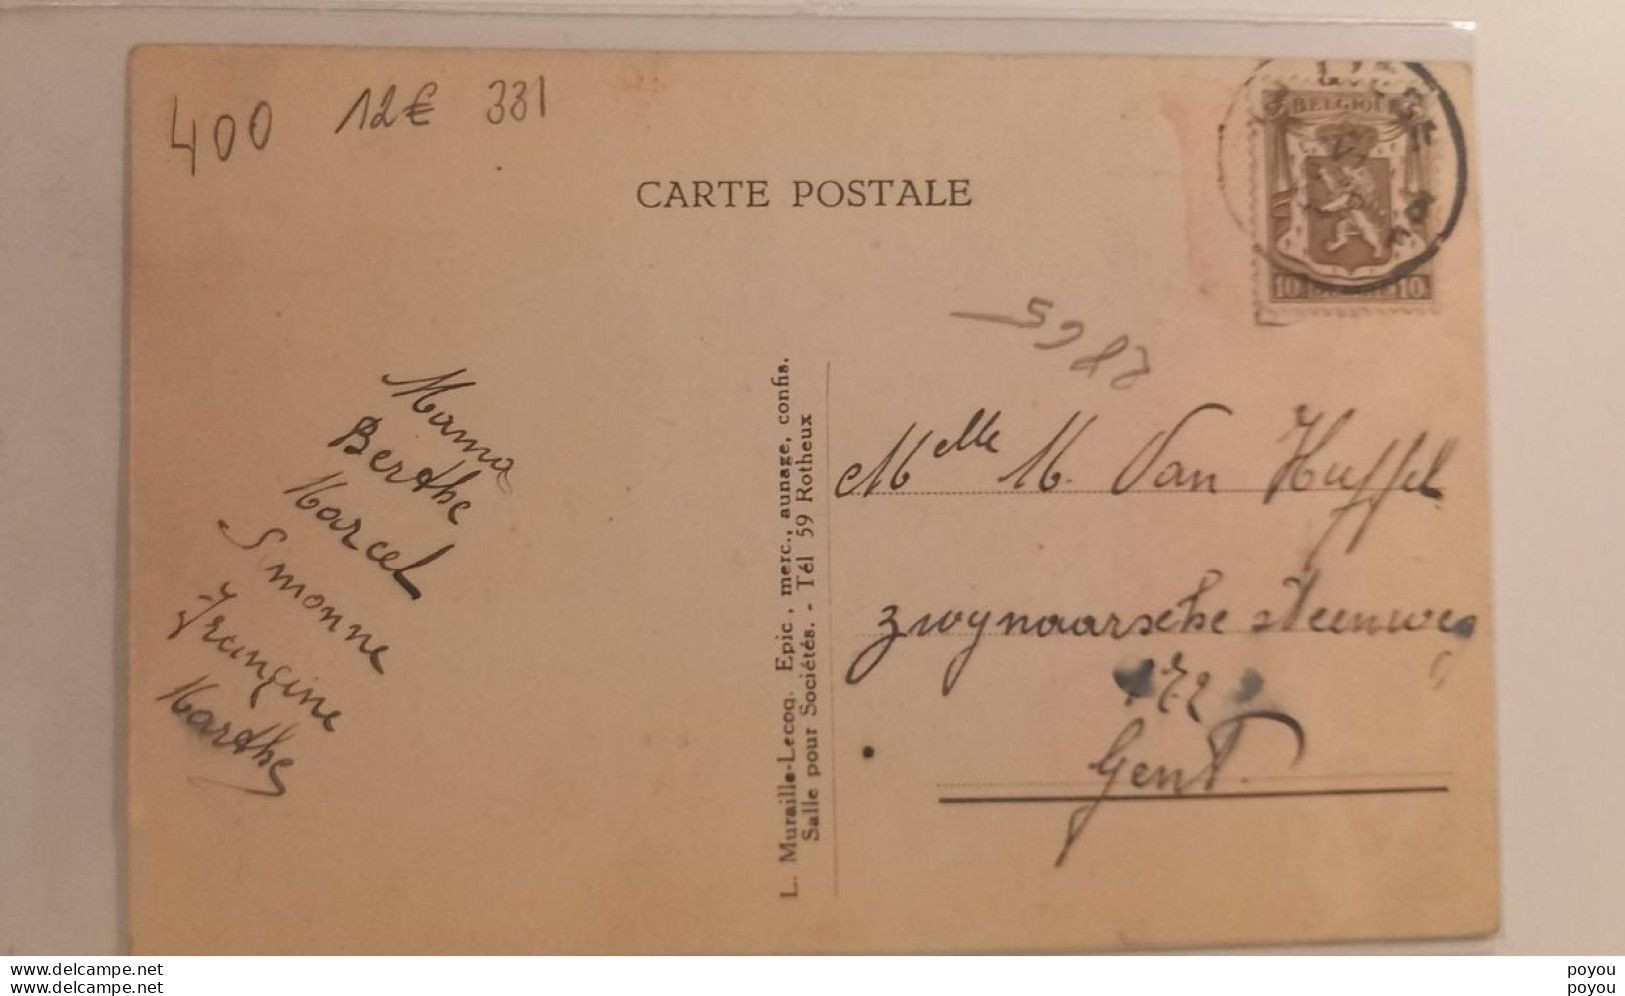 400 12€ 331
CARTE POSTALE
BELGIQUE
10 10
5985
Mama
Berthe
Marcel
Simonne
Françine
Marthe
L. Muraille-Lecoq. Epic., merc., aunage, confis.
Salle pour Sociétés. - Tél 59 Rotheux
Melle M. Van Huffel
Zwynaarsche steenweg
Gent.
www.delcampe.net
www.delcampe.net
poyou
poyou